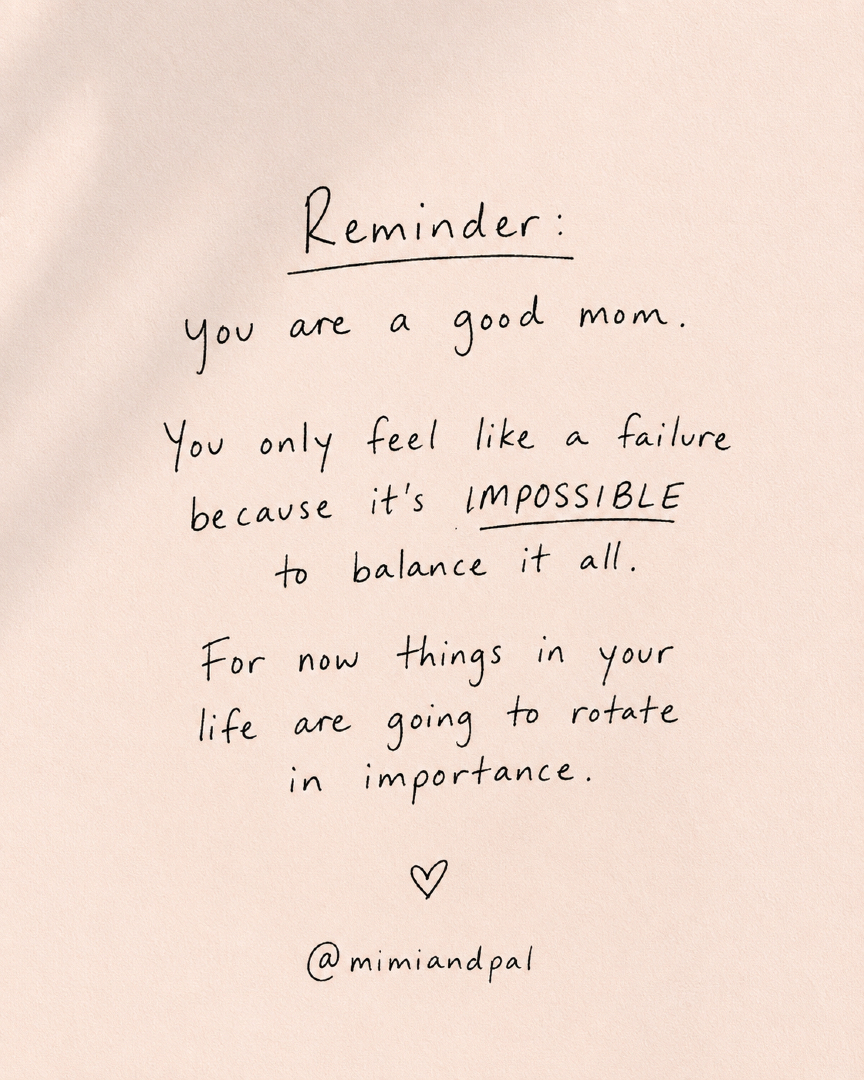 Reminder:
you are a good mom.
You only feel like a failure
because it's IMPOSSIBLE
to balance it all.
For now things in your
life are going to rotate
in importance.
@mimiandpal